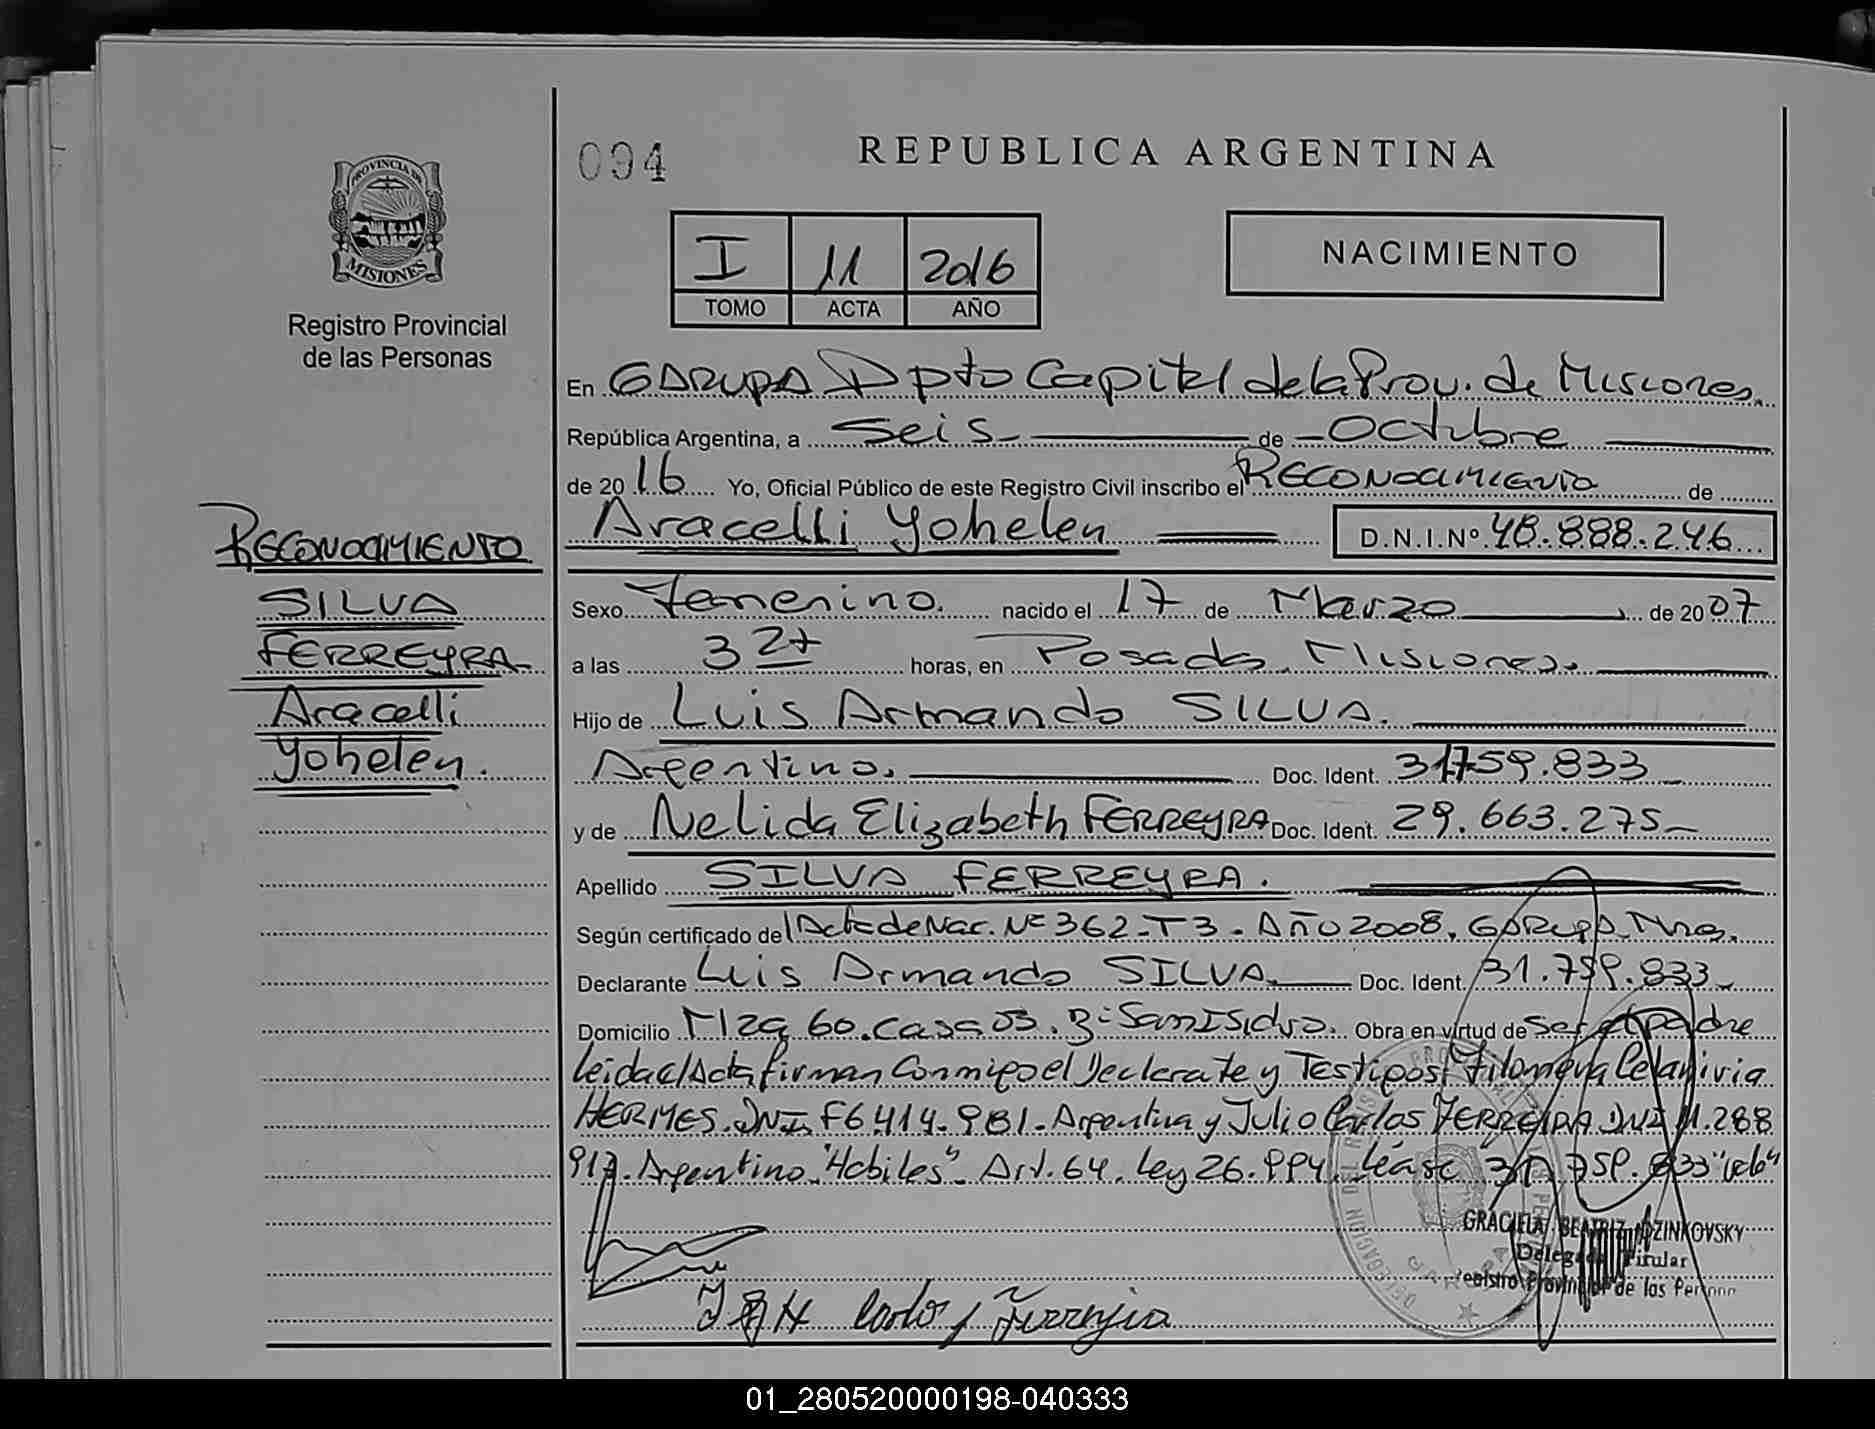 094
REPUBLICA ARGENTINA
PROVINCIA DE
MISIONES
Registro Provincial
de las Personas
I 11 2016
TOMO ACTA AÑO
NACIMIENTO
En GARUPA Dpto Capital de la Prov. de Misiones.
República Argentina, a Seis de Octubre
de 2016 Yo, Oficial Público de este Registro Civil inscribo el RECONOCIMIENTO de
Aracelli Yohelen D.N.I.Nº 48.888.246
RECONOCIMIENTO
SILVA
FERREYRA
Aracelli
Yohelen.
Sexo Femenino. nacido el 17 de Marzo de 2007
a las 3 27 horas, en Posadas Misiones.
Hijo de Luis Armando SILVA.
Argentino. Doc. Ident. 31.759.833
y de Nelida Elizabeth FERREYRA Doc. Ident. 29.663.275
Apellido SILVA FERREYRA.
Según certificado de Acta de Nac. Nº 362-T3. Año 2008. GARUPA Mnes.
Declarante Luis Armando SILVA Doc. Ident. 31.759.833
Domicilio Mza 60. Casa 03. Bº San Isidro. Obra en virtud de Ser el padre
Leida el Acta firman Conmigo el Declarate y Testigos: Filomena
HERMES. DNI F6.414.981. Argentina y Julio Carlos FERREIRA DNI 11.288
917. Argentino. "Habiles". Art. 64. Ley 26.994. Léase 31.759.833 "vale"
GRACIELA BEATRIZ
Delegada Titular
Registro Provincial de las Personas
Carlos Ferreyra
01_280520000198-040333